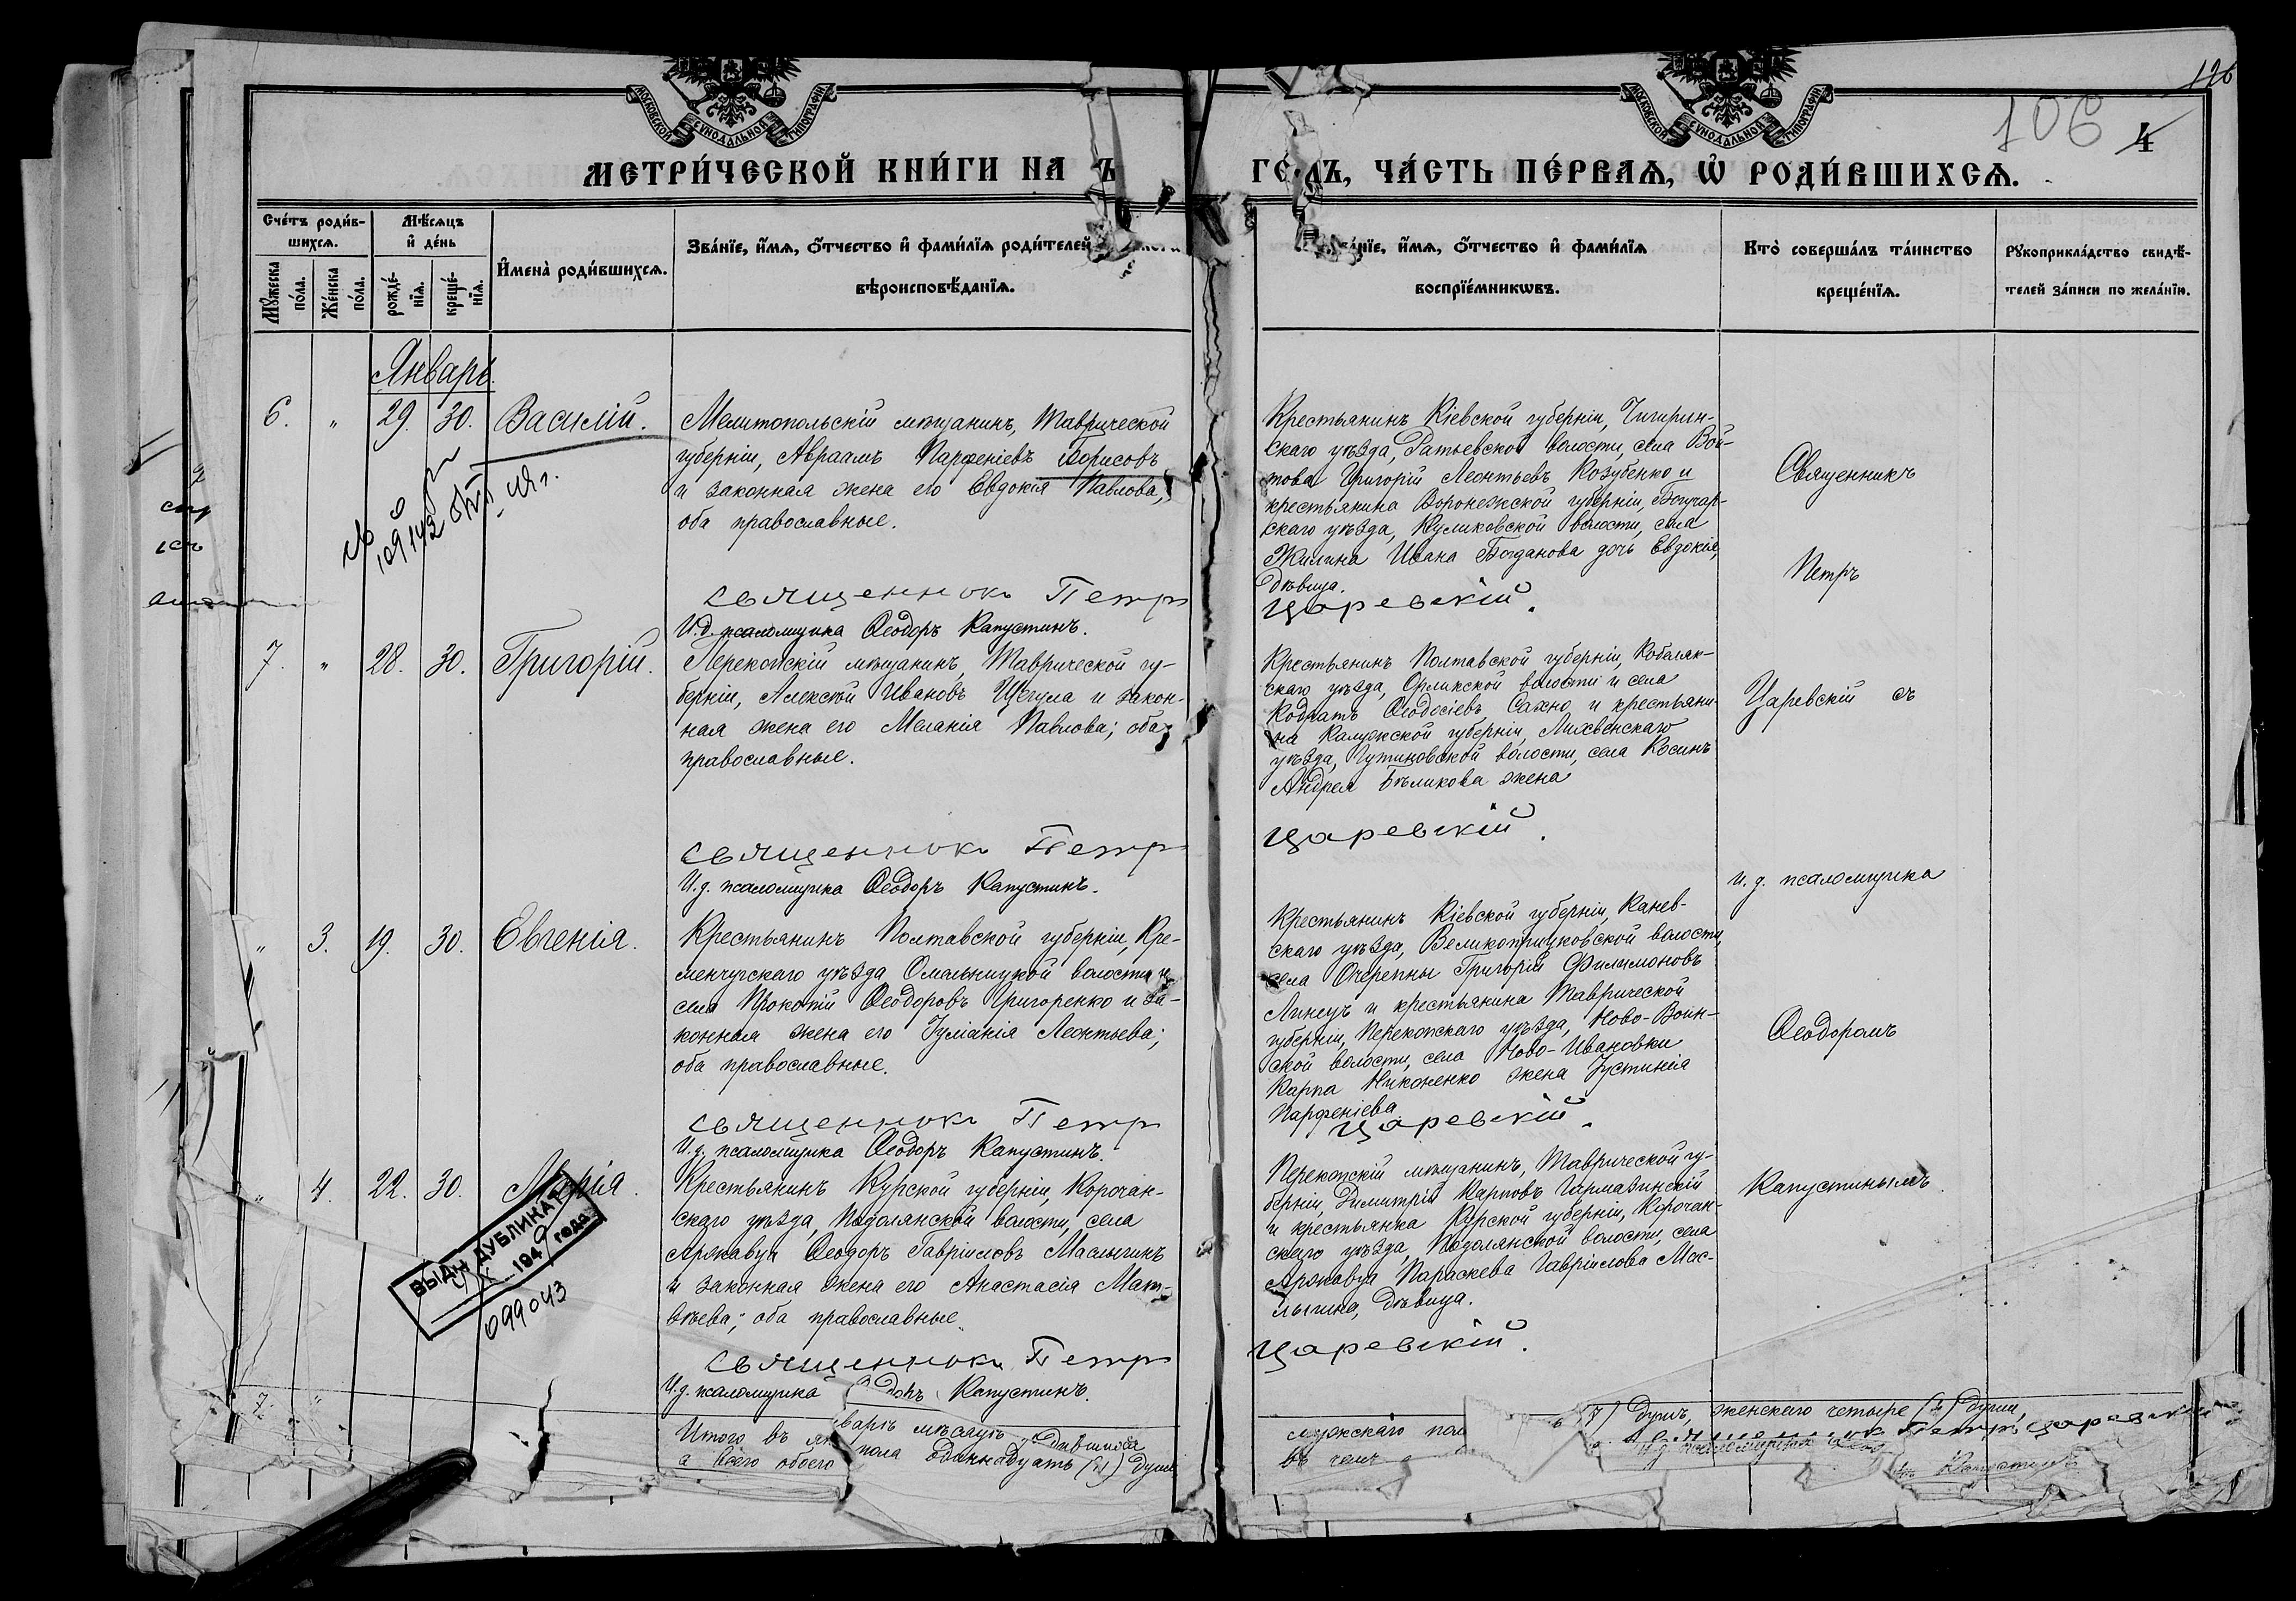 126
106 4
МОСКОВСКОЙ СѴНОДАЛЬНОЙ ТИПОГРАФІИ
МОСКОВСКОЙ СѴНОДАЛЬНОЙ ТИПОГРАФІИ
МЕТРИ́ЧЕСКОЙ КНИ́ГИ НА Ъ ГО́ДЪ, ЧА́СТЬ ПЕ́РВАЯ, Ѡ РОДИ́ВШИХСЯ.
Сче́тъ роди́в-
шихся.
Мѣ́сяцъ
и де́нь
Му́жеска по́ла.
Же́нска по́ла.
рожде́-
нїя.
креще́-
нїя.
Имена̀ роди́вшихся.
Зва́нїе, и́мя, о́тчество и фами́лїя роди́телей
вѣроисповѣ́данїя.
Зва́нїе, и́мя, о́тчество и фами́лїя
воспрїе́мникѡвъ.
Кто̀ соверша́лъ та́инство
креще́нїя.
Рукоприкла́дство свидѣ́-
телей за́писи по жела́нїю.
Январь.
6. " 29. 30. Василій.
Мелитопольскій мѣщанинъ, Таврической
губерніи, Авраамъ Парѳеніевъ Борисовъ
и законная жена его Евдокія Павлова,
оба православные.
Священникъ Петръ
И.д. псаломщика Ѳеодоръ Капустинъ.
Крестьянинъ Кіевской губерніи, Чигирин-
скаго уѣзда, Ратьевской волости, села Вои-
това Григорій Леонтьевъ Козубенко и
крестьянина Воронежской губерніи, Богучар-
скаго уѣзда, Куликовской волости, села
Жилина Ивана Богданова дочь Евдокія,
дѣвица.
Царевскій.
Священникъ
Петръ
7. " 28. 30. Григорій.
Перекопскій мѣщанинъ, Таврической гу-
берніи, Алексѣй Ивановъ Щегула и закон-
ная жена его Меланія Павлова; оба
православные.
Священникъ Петръ
И.д. псаломщика Ѳеодоръ Капустинъ.
Крестьянинъ Полтавской губерніи, Кобеляк-
скаго уѣзда, Орликской волости и села
Кодратъ Ѳеодосіевъ Сахно и крестьяни-
на Калужской губерніи, Лихвенскаго
уѣзда, волости, села Косинъ
Андрея Бѣликова жена
Царевскій.
Царевскій съ
и.д. псаломщика
" 3. 19. 30. Евгенія.
Крестьянинъ Полтавской губерніи, Кре-
менчугскаго уѣзда Омельницкой волости и
села Прокопій Ѳеодоровъ Григоренко и за-
конная жена его Іуліанія Леонтьева;
оба православные.
Священникъ Петръ
И.д. псаломщика Ѳеодоръ Капустинъ.
Крестьянинъ Кіевской губерніи, Канев-
скаго уѣзда, Великоприцковской волости,
села Очеретны Григорій Филимоновъ
Линецъ и крестьянина Таврической
губерніи, Перекопскаго уѣзда, Ново-Воин-
ской волости, села Ново-Ивановки
Карпа Никоненко жена Іустинія
Парѳеніева
Царевскій.
Ѳеодоромъ
" 4. 22. 30. Марія.
Крестьянинъ Курской губерніи, Корочан-
скаго уѣзда, Подолянской волости, села
Аржавца Ѳеодоръ Гавріиловъ Маслыгинъ
и законная жена его Анастасія Мат-
вѣева; оба православные.
Священникъ Петръ
И.д. псаломщика Капустинъ.
Перекопскій мѣщанинъ, Таврической гу-
берніи, Димитрій Карповъ Гармазинскій
и крестьянка Курской губерніи, Корочан-
скаго уѣзда, Подолянской волости, села
Аржавца Параскева Гавріилова Мас-
лыгина, дѣвица.
Царевскій.
Капустинымъ
ВЫДАН ДУБЛИКАТ
194 года
099043
Итого въ январѣ мѣсяцѣ родившихся
а всего обоего пола одиннадцать (11) душъ
мужскаго пол (7) душъ, женскаго четыре (4) души,
въ чемъ Петръ Царевскій
Капустинъ